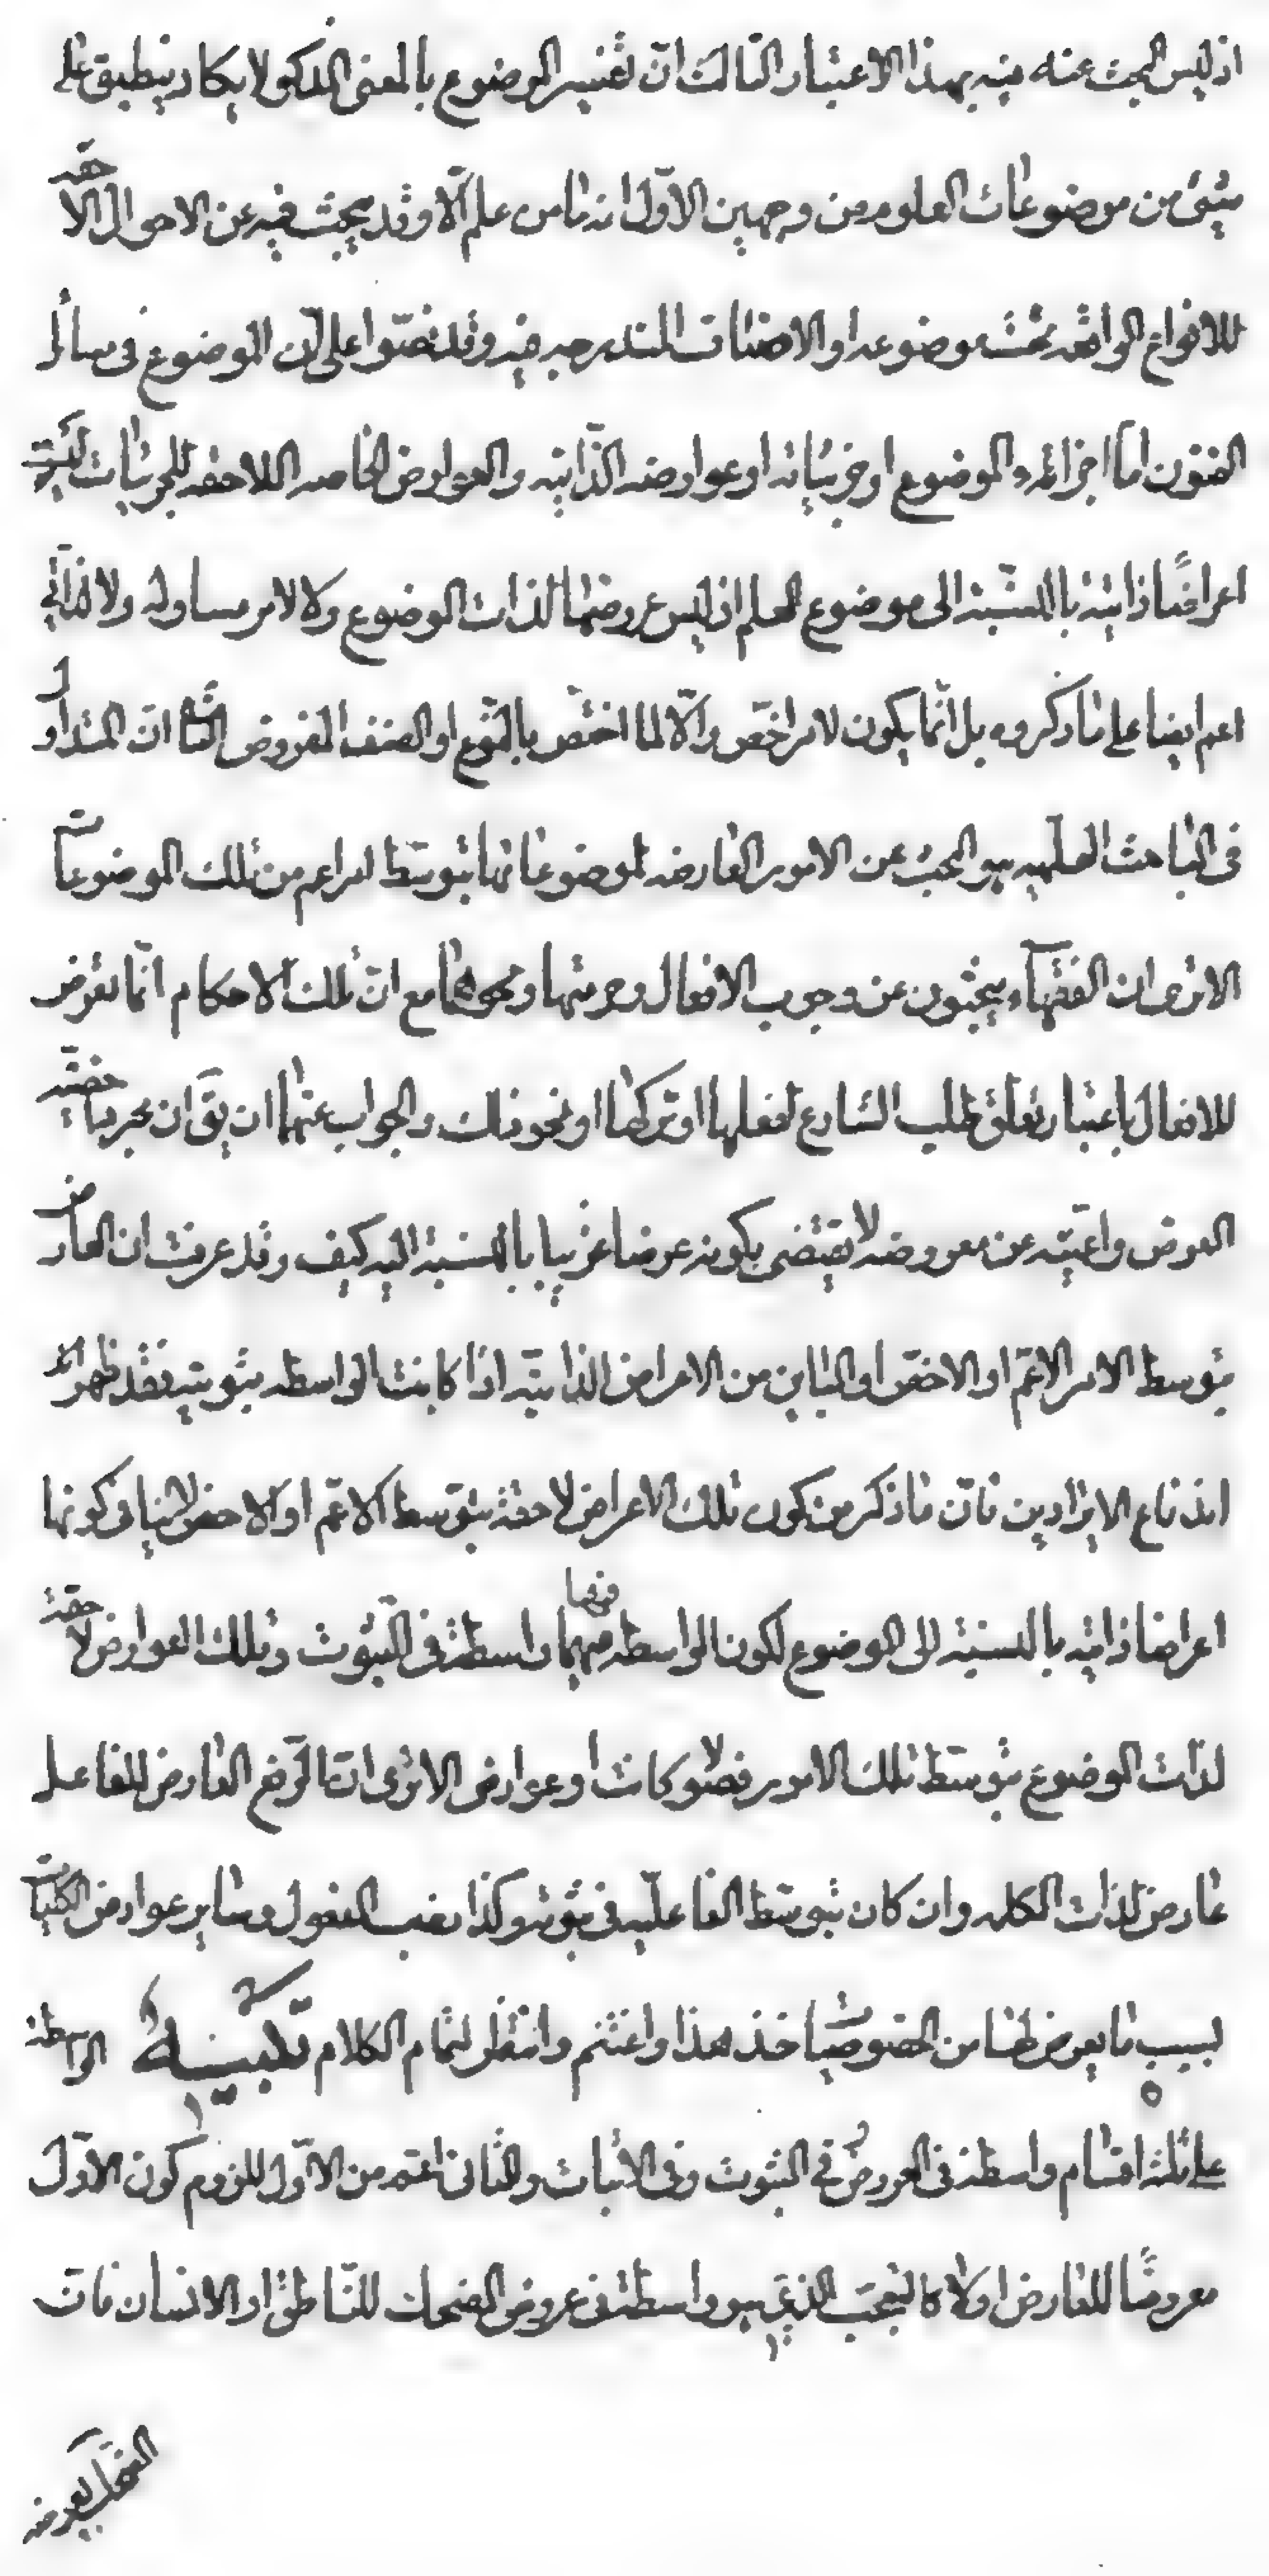 اذ ليس البحث عنه فيه بهذا الاعتبار الثالث ان تفسير الموضوع بالمعنى المذكور لا يكاد ينطبق على
شئ من موضوعات العلوم من وجهين الاول انه ما من علم الا وقد يبحث فيه عن الاحوال اللاحقه
للانواع الواقعه تحت موضوعه او الاصناف المندرجه فيه وقد نصّوا على ان الموضوع في مسائل
الفنون اما اجزاء الموضوع او جزئياته او عوارضه الذاتيه والعوارض الخاصه اللاحقه للجزئيات ليست
اعراضًا ذاتية بالنسبة الى موضوع العلم اذ ليس عروضها لذات الموضوع ولا لامر مساو له ولا لذاتي
اعم ايضا على ما ذكروه بل انّما يكون لامر اخصّ والّا لما اختصّ بالنّوع او الصنف المفروض الثاني ان المتداول
في المباحث العلميه هو البحث عن الامور العارضه لموضوعاتها بتوسّط امر اعم من تلك الموضوعات
الا ترى ان الفقهاء يبحثون عن وجوب الافعال وحرمتها مع انّ تلك الاحكام انّما تعرض
للافعال باعتبار تعلّق طلب الشارع لفعلها او تركها او نحو ذلك والجواب عنهما ان يقَ ان مجرد اخصّيه
العرض واعميّته عن معروضه لا يقتضى بكونه عرضا غريبا بالنسبة اليه كيف وقد عرفت ان العارض
بتوسط الامر الاعمّ او الاخصّ او المباين من الاعراض الذاتيّه اذا كانت الواسطه ثبوتيه فقد ظهر لك
اندفاع الايرادين فانّ ما ذكر من كون تلك الاعراض لاحقة بتوسط الاعمّ او الاخص لا ينافي كونها
اعراضا ذاتيه بالنسبة الى الموضوع لكون الواسطه فيهما واسطة في الثبوت وتلك العوارض لاحقة
لذات الموضوع بتوسّط تلك الامور فصولا كانت او عوارض الا ترى انّ الرّفع العارض للفاعل
عارض لذات الكلمه وان كان بتوسّط الفاعليّه في ثبوته وكذا نصب المفعول وساير عوارض الكلمات
بسبب ما يعرض لها من الخصوصيات خذ هذا واغتنم وانتظر لتمام الكلام تنبيه الواسطة
على ثلثة اقسام واسطة في العروض وفي الثبوت وفي الاثبات والثاني اعم من الاوّل للزوم كون الاوّل
معروضًا للعارض اولا كالتعجّب الذى هو واسطة في عروض الضحك للنّاطق او الانسان فانّ
الضحك يعرض